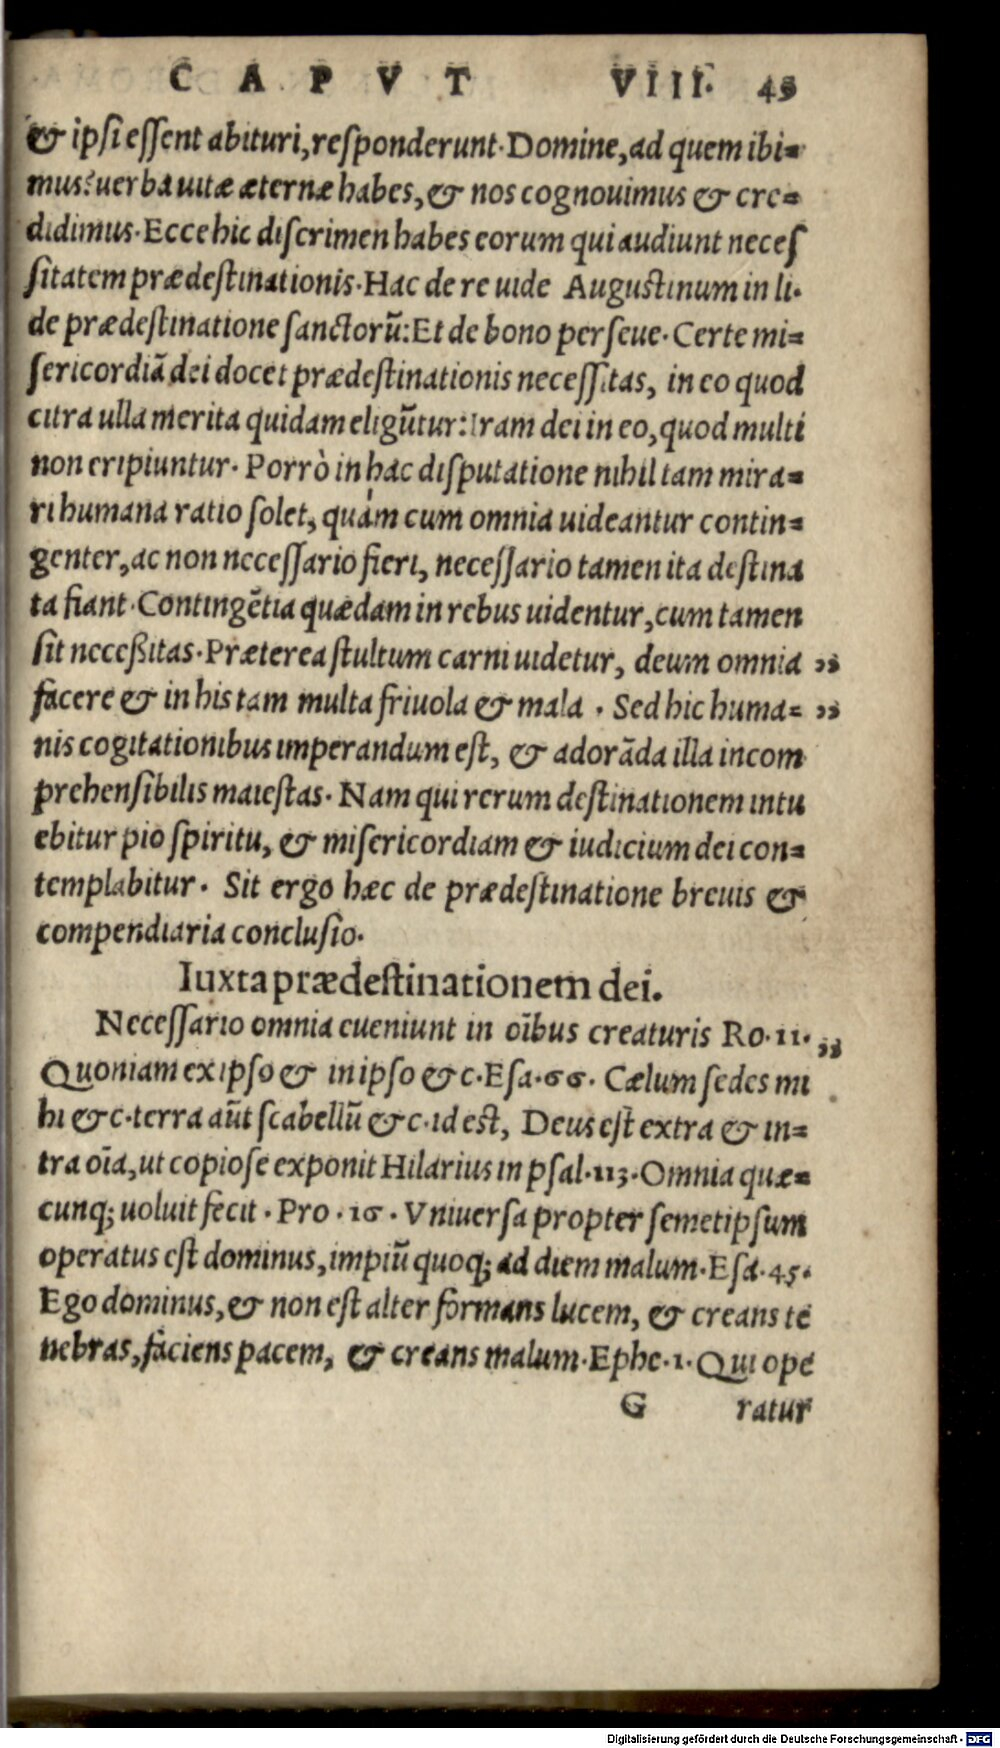 CAPVT VIII. 49
& ipsi essent abituri, responderunt. Domine, ad quem ibi=
mus? uerba uitæ æternæ habes, & nos cognouimus & cre=
didimus. Ecce hic discrimen habes eorum qui audiunt neces
sitatem prædestinationis. Hac de re uide Augustinum in li.
de prædestinatione sanctorū: Et de bono perseue. Certe mi=
sericordiā dei docet prædestinationis necessitas, in eo quod
citra ulla merita quidam eligūtur: Iram dei in eo, quod multi
non eripiuntur. Porrò in hac disputatione nihil tam mira=
ri humana ratio solet, quàm cum omnia uideantur contin=
genter, ac non necessario fieri, necessario tamen ita destina
ta fiant. Contingētia quædam in rebus uidentur, cum tamen
sit neceßitas. Præterea stultum carni uidetur, deum omnia „
facere & in his tam multa friuola & mala . Sed hic huma= „
nis cogitationibus imperandum est, & adorāda illa incom
prehensibilis maiestas. Nam qui rerum destinationem intu
ebitur pio spiritu, & misericordiam & iudicium dei con=
templabitur. Sit ergo hæc de prædestinatione breuis &
compendiaria conclusio.
Iuxta prædestinationem dei.
Necessario omnia eueniunt in oībus creaturis Ro. 11. „
Quoniam ex ipso & in ipso &c. Esa. 66. Cælum sedes mi
hi &c. terra aūt scabellū &c. id est, Deus est extra & in=
tra oīa, ut copiose exponit Hilarius in psal. 113. Omnia quæ=
cunq; uoluit fecit . Pro . 16 . Vniuersa propter semetipsum
operatus est dominus, impiū quoq; ad diem malum. Esa. 45.
Ego dominus, & non est alter formans lucem, & creans te
nebras, faciens pacem, & creans malum. Ephe. 1. Qui ope
G ratur
Digitalisierung gefördert durch die Deutsche Forschungsgemeinschaft - DFG